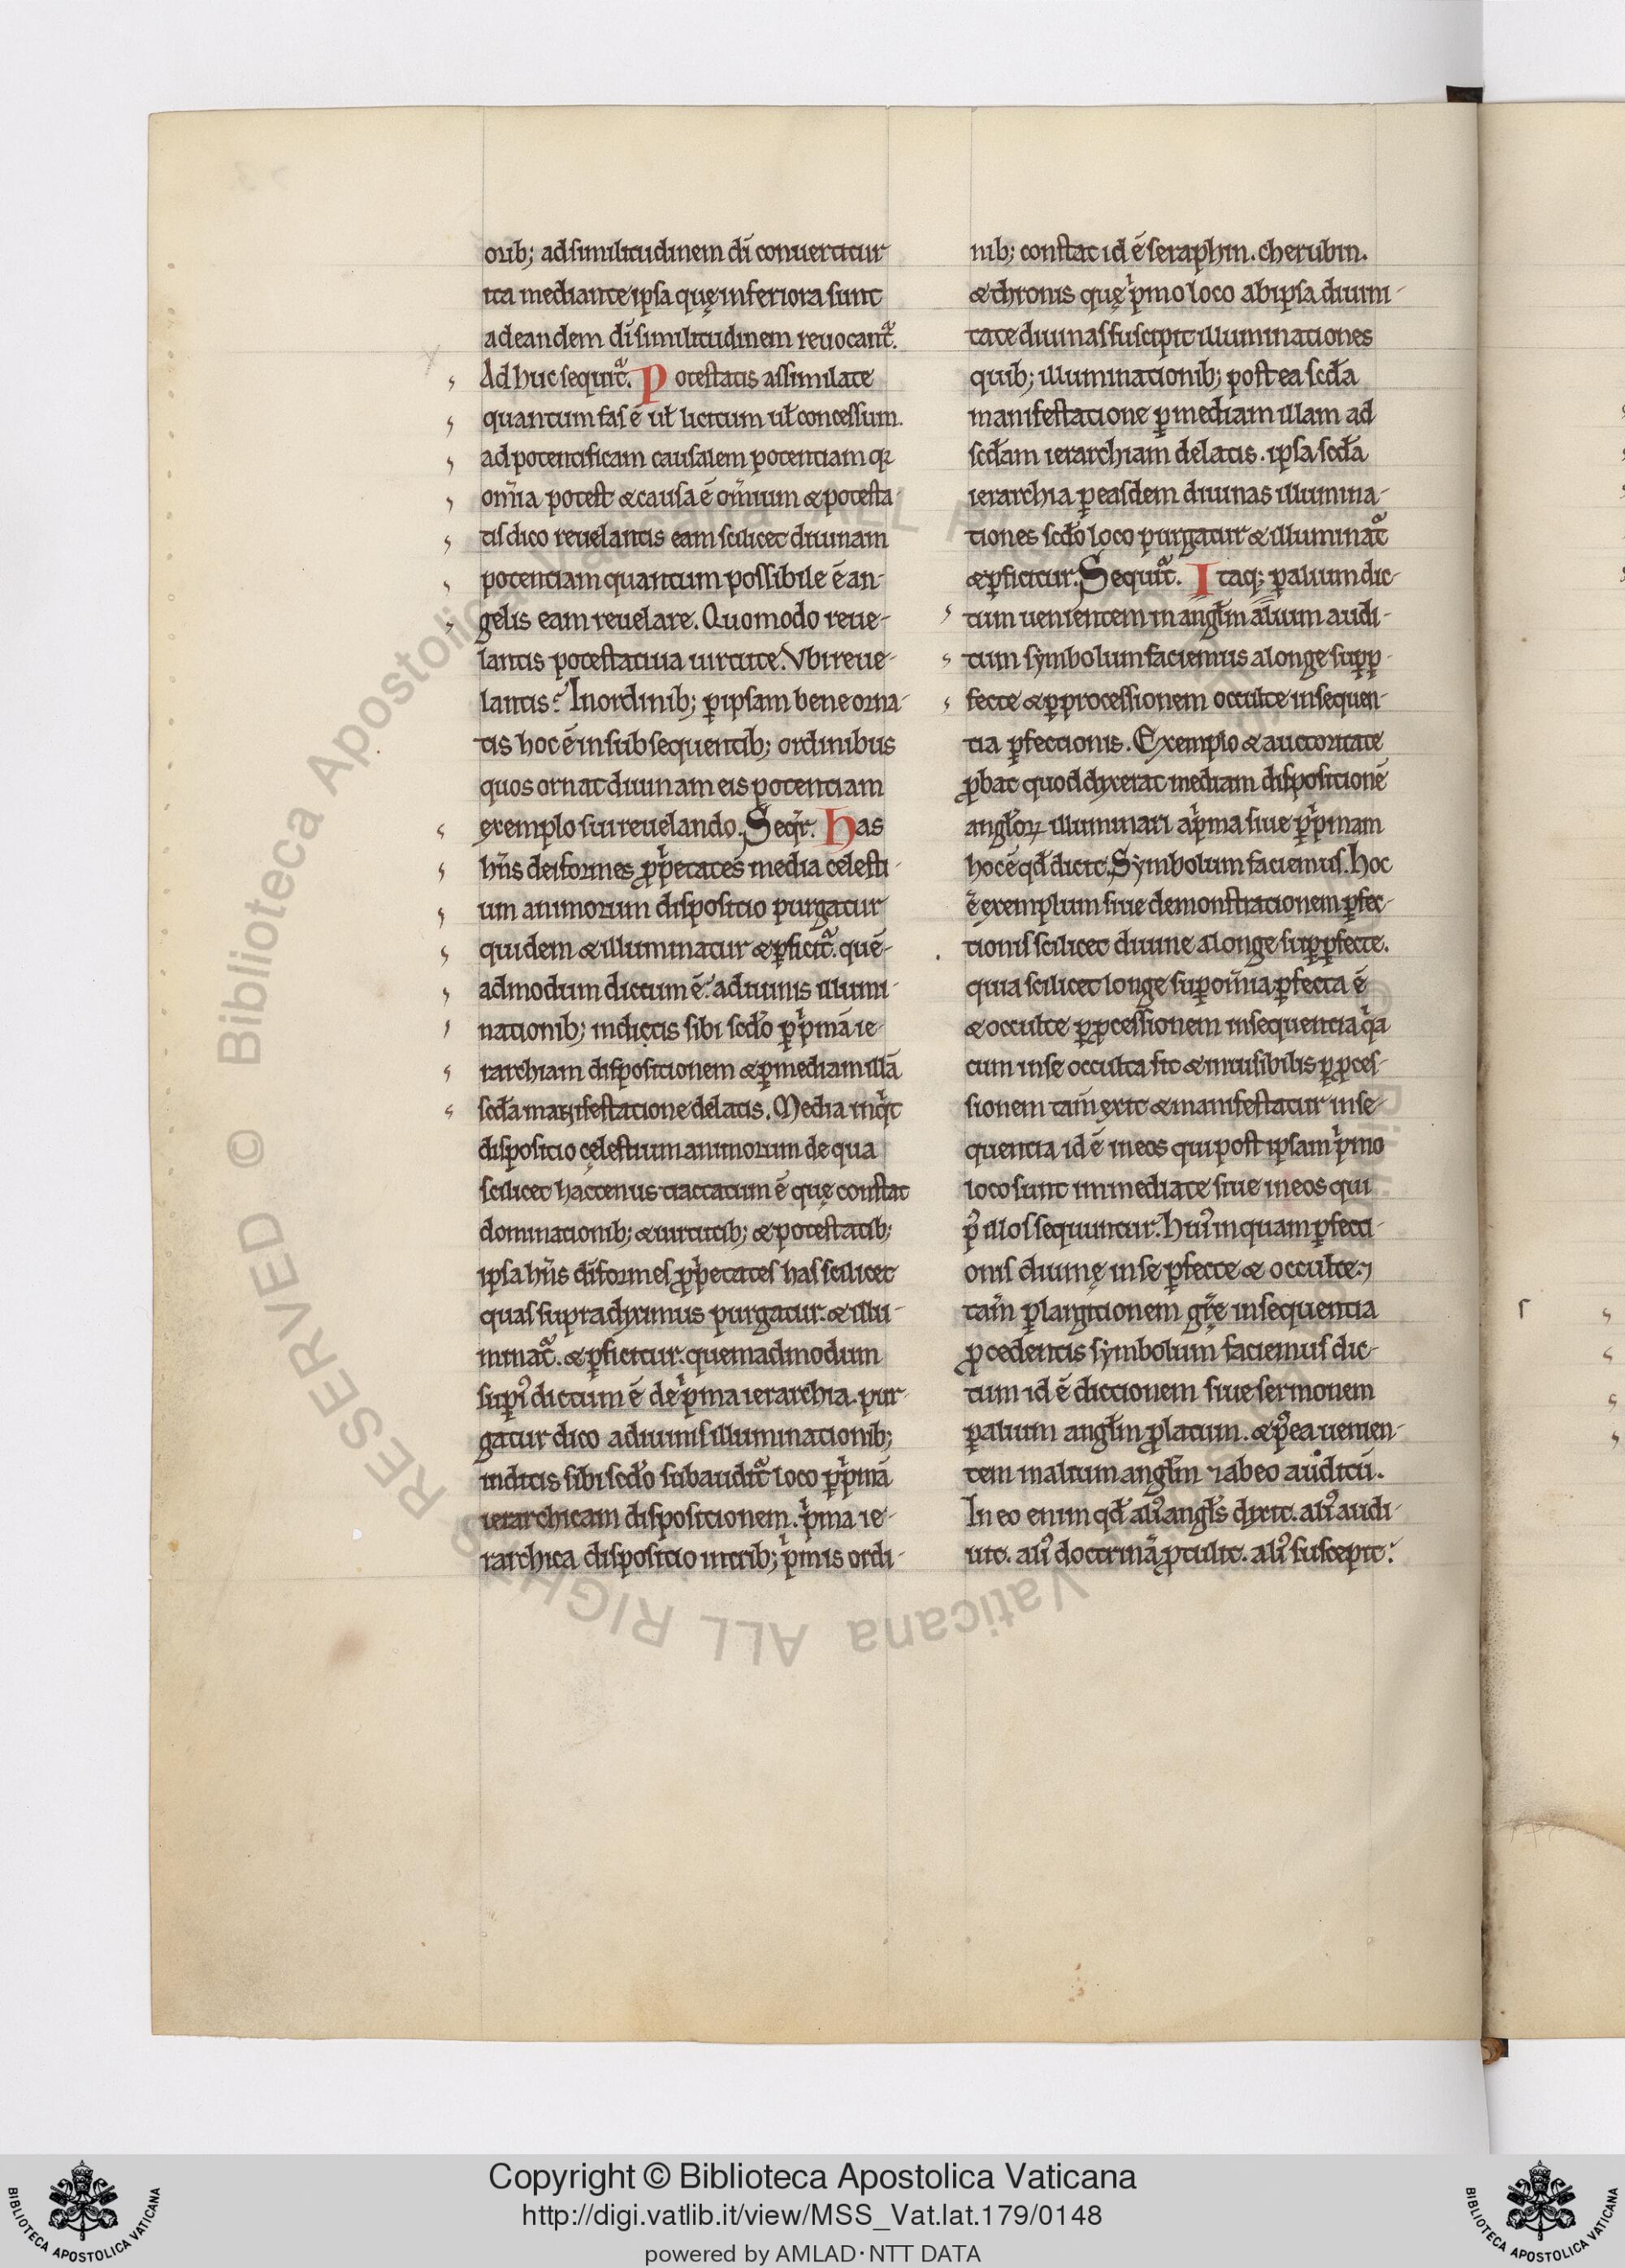 orib; ad similitudinem dī conuertitur
ita mediante ipsa quę inferiora sunt
ad eandem dī similitudinem reuocant᷑.
Ad huc sequit᷑. Potestatis assimilate
quantum fas ē uł licitum uł concessum.
ad potentificam causalem potentiam qꝛ
om̄ia potest & causa ē om̄ium & potesta-
tis dico reuelantis eam scilicet diuinam
potentiam quantum possibile ē an-
gelis eam reuelare. Quomodo reue-
lantis potestatiua uirtute. Vbi reue-
lantis? In ordinib; ꝑ ipsam bene orna-
tis hoc ē in subsequentib; ordinibus
quos ornat diuinam eis potentiam
exemplo sui reuelando. Seqͥr. Has
hn̄s deiformes ꝓpͥetates media celesti-
um animorum dispositio purgatur
quidem & illuminatur & ꝑficit᷑. quē-
admodum dictum ē. a diuinis illumi-
nationib; inditis sibi scđo ꝑ pͥmā ie-
rarchiam dispositionem & ꝑ mediam illā
scđa manifestatione delatis. Media inqͥt
dispositio cęlestium animorum de qua
scilicet hactenus tractatum ē quę constat
dominationib; & uirtutib; & potestatib;
ipsa hn̄s dīformes ꝓpͥetates has scilicet
quas supra dyximus purgatur. & illu-
minat᷑. & ꝑficitur. quemadmodum
suꝑꝰ dictum ē de pͥma ierarchia. pur-
gatur dico a diuinis illuminationib;
inditis sibi scđo subaudit᷑ loco ꝑ pͥmā
ierarchicam dispositionem. pͥma ie-
rarchica dispositio in trib; pͥmis ordi-
nib; constat id ē seraphin. cherubin.
& thronis quę pͥmo loco ab ipsa diuini-
tate diuinas suscipit illuminationes
quib; illuminationib; postea scđa
manifestatione ꝑ mediam illam ad
scđam ierarchiam delatis. ipsa scđa
ierarchia ꝑ easdem diuinas illumina-
tiones scđo loco purgatur & illuminat᷑
& ꝑficitur. Sequit᷑. Itaq; ꝑ alium dic-
tum uenientem in angłm alium audi-
tum symbolum faciemus a longe suꝑꝑ-
fecte & ꝑ processionem occulte in sequen-
tia ꝑfectionis. Exemplo & auctoritate
ꝓbat quod dyxerat mediam dispositionē
angłoꝝ illuminari a pͥma siue ꝑ pͥmam
hoc ē qđ dicit. Symbolum faciemus. hoc
ē exemplum siue demonstrationem ꝑfec-
tionis scilicet diuine a longe suꝑꝑfecte.
quia scilicet longe suꝑ om̄ia ꝑfecta ē
& occulte ꝑ ꝓcessionem in sequentia qͥa
cum in se occulta sit & inuisibilis ꝑ ꝓces-
sionem tam̄ exit & manifestatur in se-
quentia id ē in eos qui post ipsam pͥmo
loco sunt immediate siue in eos qui
pꝰ illos sequuntur. Huiꝰ inquam ꝑfecti-
onis diuinę in se ꝑfecte & occulte. ⁊
tam̄ ꝑ largitionem gr̄ę in sequentia
ꝓcedentis symbolum faciemus dic-
tum id ē dictionem siue sermonem
ꝑ alium angłm ꝓlatum. & pꝰea uenien-
tem in alium angłm ⁊ ab eo auditū.
In eo enim qđ aliꝰ angłs dyxit. aliꝰ audi-
uit. aliꝰ doctrinā ꝓtulit. aliꝰ suscepit.
Copyright © Biblioteca Apostolica Vaticana
http://digi.vatlib.it/view/MSS_Vat.lat.179/0148
powered by AMLAD·NTT DATA